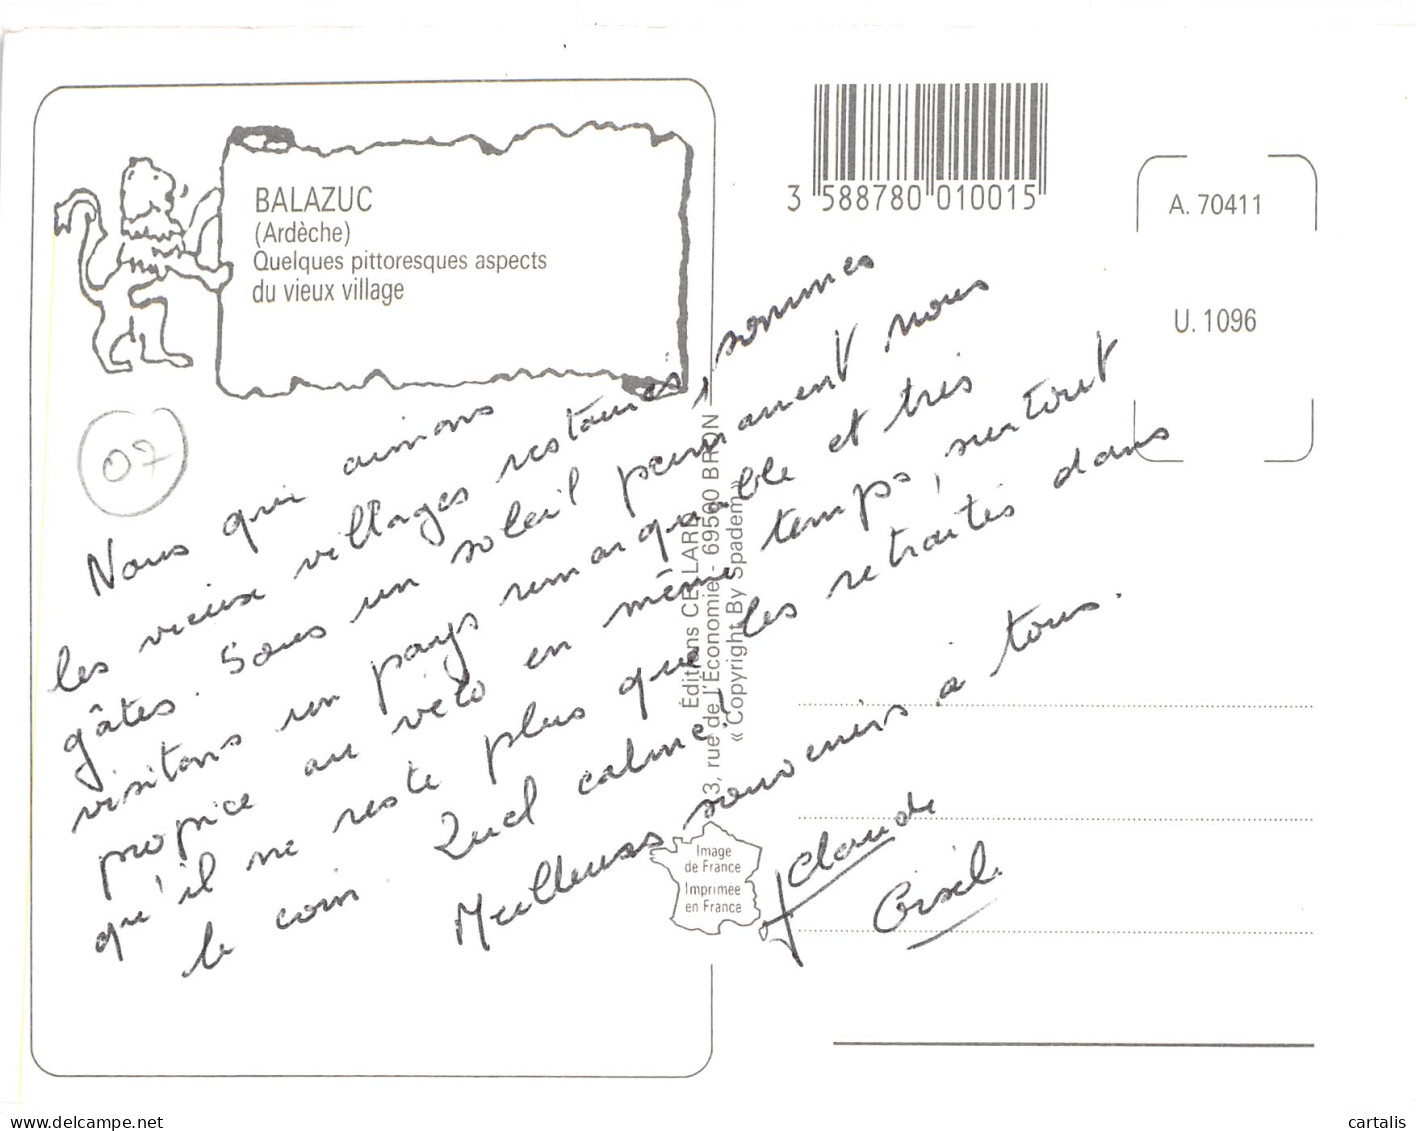 BALAZUC
(Ardèche)
Quelques pittoresques aspects
du vieux village
3 588780 010015
A. 70411
U. 1096
07
Nous qui aimons
les vieux villages restaurés, sommes
gâtés. Sous un soleil permanent nous
visitons un pays remarquable et très
propice au vélo en même temps, surtout
qu'il ne reste plus que les retraités dans
le coin. Quel calme!
Meilleurs souvenirs à tous.
JClaude
Gisèle
Éditions CELLARD
3, rue de l'Économie - 69500 BRON
« Copyright By Spadem »
Image
de France
Imprimée
en France
www.delcampe.net
cartalis